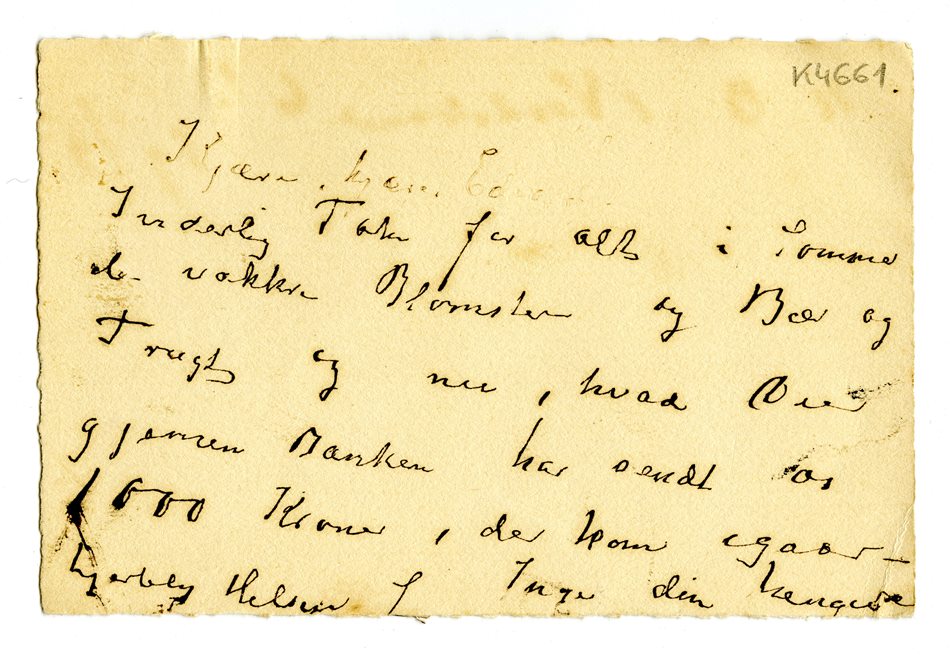 K4661.
Kjære, kjære Edvard
Inderlig Tak for alt i Somme
de vakkre Blomster og Bær og
Frugt og nu, hvad
gjennem Banken har sendt os
1000 Kroner, der kom igaar –
hjertelig Hilsen f Inge din hengivne